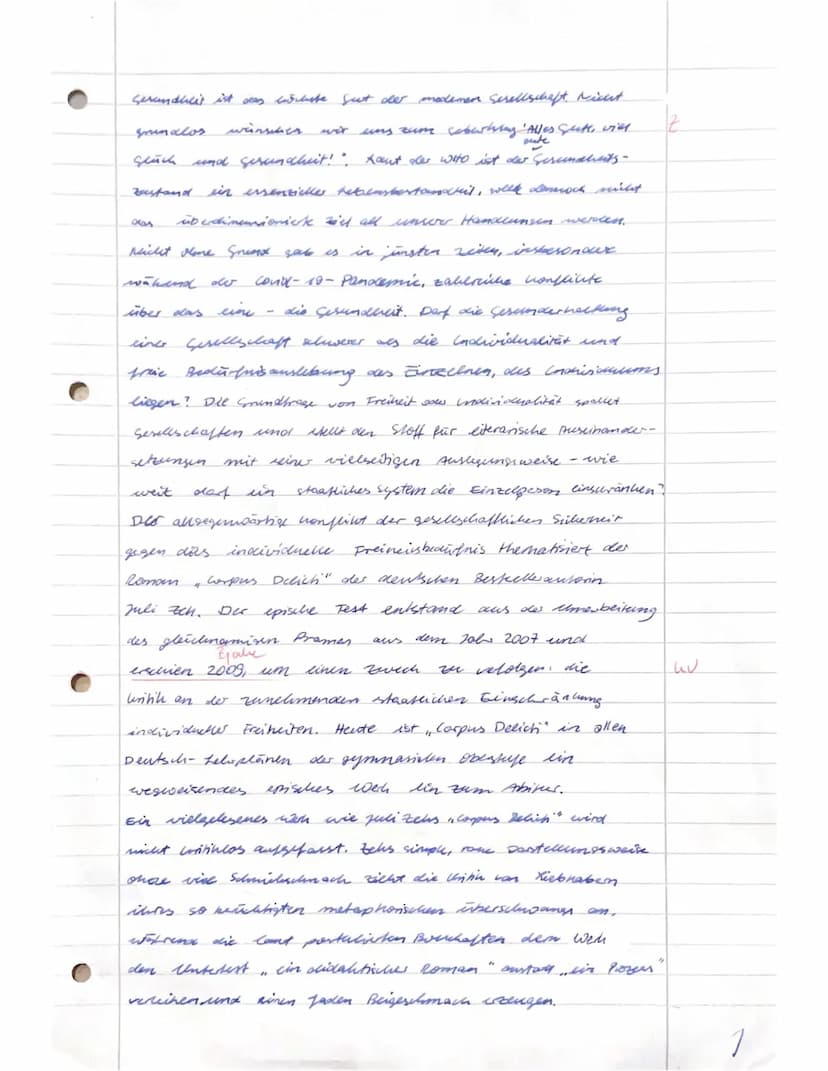 Gesundheit ist das höchste Gut der modernen Gesellschaft. Nicht
grundlos wünschen wir uns zum Geburtstag "Alles Gute, viel Z
Glück und Gesundheit!". Laut der WHO ist der Gesundheits-
zustand ein essenzieller Lebensbestandteil, sollte dennoch nicht
das überdimensionierte Ziel all unserer Handlungen werden.
Nicht ohne Grund gab es in jüngsten Zeiten, insbesondere
während der Covid-19-Pandemie, zahlreiche Konflikte
über das eine - die Gesundheit. Darf die Gesunderhaltung
einer Gesellschaft schwerer als die Individualität und
freie Bedürfnisauslebung des Einzelnen, des Individuums
liegen? Die Grundfrage von Freiheit oder Individualität spaltet
Gesellschaften und stellt den Stoff für literarische Auseinander-
setzungen mit seiner vielseitigen Auslegungsweise - wie
weit darf ein staatliches System die Einzelperson einschränken?
Der allgegenwärtige Konflikt der gesellschaftlichen Sicherheit
gegen das individuelle Freiheitsbedürfnis thematisiert der
Roman "Corpus Delicti" der deutschen Bestellerautorin
Juli Zeh. Der epische Text entstand aus der Umarbeitung
des gleichnamigen Dramas aus dem Jahr 2007 und
erschien 2009, um einen Zweck zu verfolgen: die
Kritik an der zunehmenden staatlichen Einschränkung
individueller Freiheiten. Heute ist "Corpus Delicti" in allen
Deutsch-Lehrplänen der gymnasialen Oberstufe ein
wegweisendes episches Werk hin zum Abitur.
Ein vielgelesenes Werk wie Juli Zehs "Corpus Delicti" wird
nicht kritiklos aufgefasst. Zehs simple, raue Darstellungsweise
ohne viel Schnickschnack zieht die Kritik von Liebhabern
ihres so metaphorischen Überschwangs an,
während die laut Botschaften dem Werk
den Untertext "ein didaktischer Roman" anstatt "ein Prozess"
verleihen und einen faden Beigeschmack erzeugen.
1